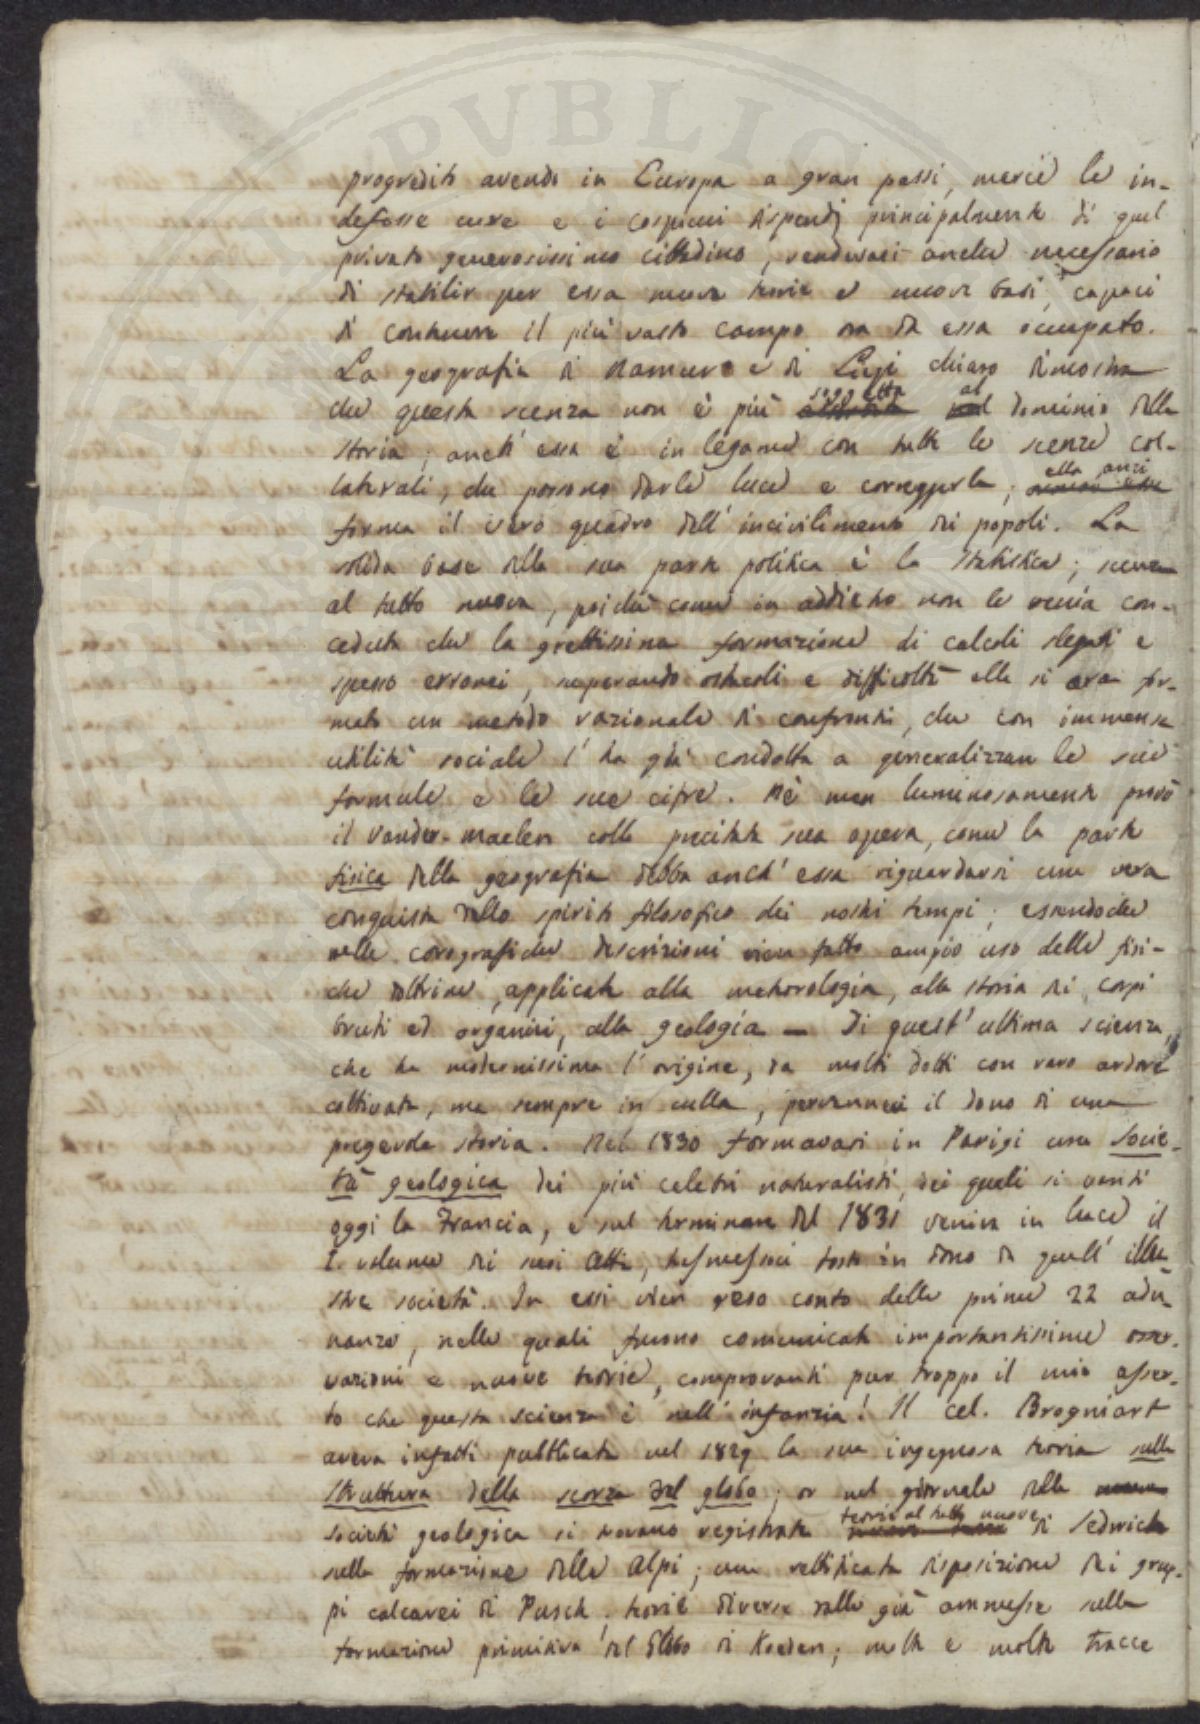 PVBLIC
progredito avendo in Europa a gran passi, mercè le in-
defesse cure e i cospicui dispendj principalmente di quel
privato generosissimo cittadino, rendevasi anche necessario
di stabilir per essa nuove teorie e nuove basi, capaci
di contenere il più vasto campo ora da essa occupato.
La geografia di Namur e di Liegi chiaro dimostra
che questa scienza non è più soggetta al dominio della
storia; anch' essa è in legame con tutte le scienze col-
laterali, che possono darle luce e correggerla; ella anzi
forma il vero quadro dell' incivilimento dei popoli. La
solida base della sua parte politica è la statistica; scienza
al tutto nuova, poichè come in addietro non le venia con-
ceduta che la grettissima formazione di calcoli slegati e
spesso erronei, superando ostacoli e difficoltà ella si era for-
mato un metodo razionale di confronti, che con immensa
utilità sociale l' ha già condotta a generalizzare le sue
formule e le sue cifre. Nè men luminosamente provò
il Vander-maelen colla precitata sua opera, come la parte
fisica della geografia debba anch' essa riguardarsi una vera
conquista dello spirito filosofico dei nostri tempi; essendochè
nelle corografiche descrizioni vien fatto ampio uso delle fisi-
che dottrine, applicate alla meteorologia, alla storia dei corpi
bruti ed organici, alla geologia — Di quest' ultima scienza,
che ha modernissima l' origine, da molti dotti con raro ardore
coltivata, ma sempre in culla, pervenneci il dono di una
pregevole storia. Nel 1830 formavasi in Parigi una Socie-
tà geologica dei più celebri naturalisti, dei quali si vanti
oggi la Francia, e sul terminare del 1831 veniva in luce il
I. volume dei suoi Atti, trasmessoci tosto in dono da quell' illu-
stre società. In essi vien reso conto delle prime 22 adu-
nanze, nelle quali furono comunicate importantissime osser-
vazioni e nuove teorie, comprovanti pur troppo il mio asser-
to che questa scienza è nell' infanzia! Il cel. Brogniart
aveva infatti pubblicata nel 1829 la sua ingegnosa teoria sulla
struttura della scorza del globo; or nel giornale della
società geologica si trovano registrate teorie al tutto nuove di Sedwick
sulla formazione delle Alpi; una rettificata disposizione dei grup-
pi calcarei di Pusch; teorie diverse dalle già ammesse sulla
formazione primitiva del Globo di Kreden; molte e molte tracce